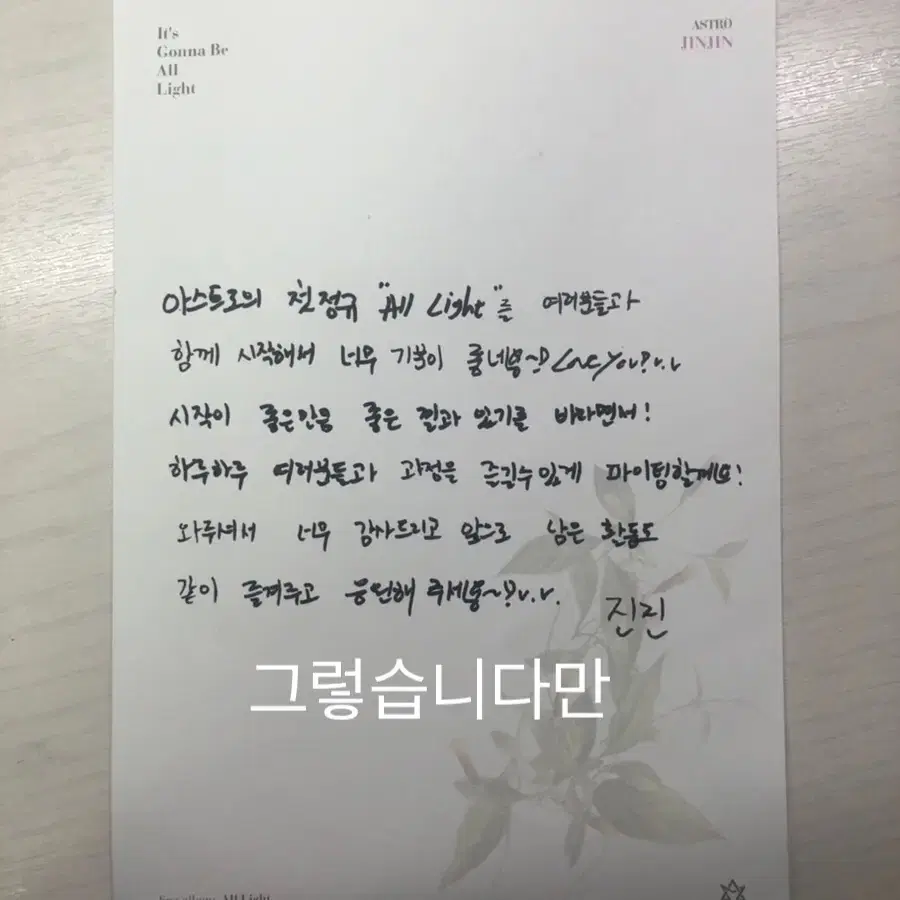 It's
Gonna Be
All
Light
ASTRO
JINJIN
아스트로의 첫정규 "All Light"를 여러분들과
함께 시작해서 너무 기분이 좋네용~♡ Love you?ν.ν
시작이 좋은만큼 좋은 결과 있기를 바라면서!
하루하루 여러분들과 과정을 즐길수있게 파이팅할게요!
와주셔서 너무 감사드리고 앞으로 남은 활동도
같이 즐겨주고 응원해 주세용~!?ν.ν.
진진
그렇습니다만
All Light